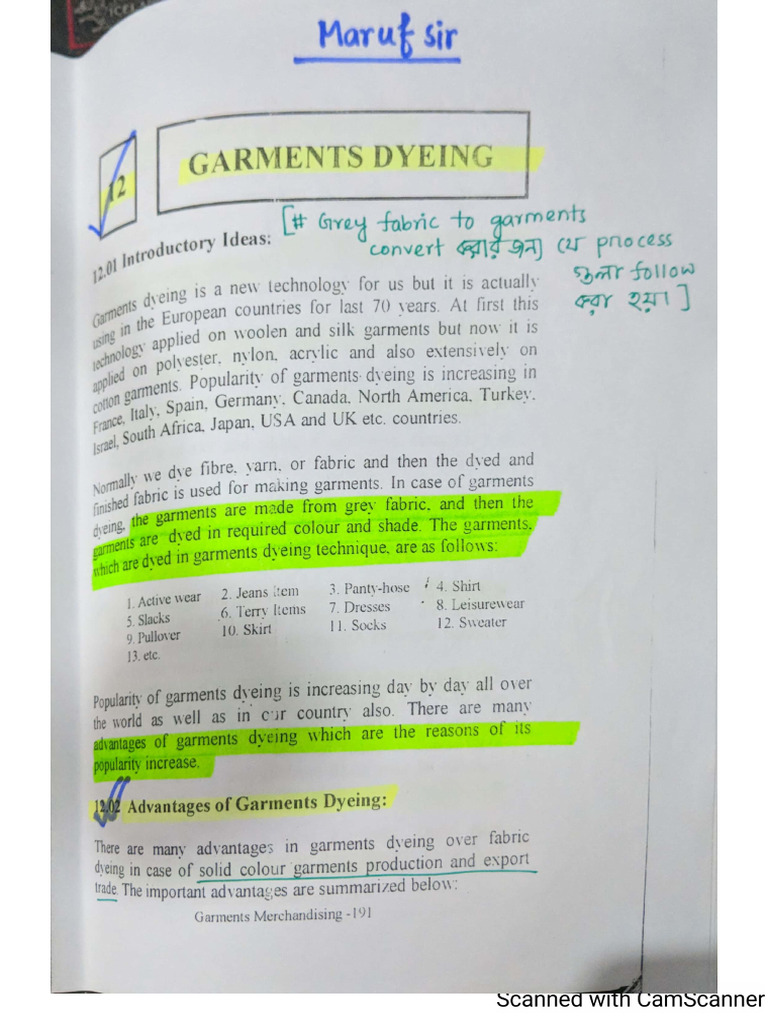 Maruf sir
12
GARMENTS DYEING
[# Grey fabric to garments
convert করার জন্য যে process
গুলা follow
করা হয়।]
12.01 Introductory Ideas:
Garments dyeing is a new technology for us but it is actually
using in the European countries for last 70 years. At first this
technology applied on woolen and silk garments but now it is
applied on polyester, nylon, acrylic and also extensively on
cotton garments. Popularity of garments dyeing is increasing in
France, Italy, Spain, Germany, Canada, North America, Turkey,
Israel, South Africa, Japan, USA and UK etc. countries.
Normally we dye fibre, yarn, or fabric and then the dyed and
finished fabric is used for making garments. In case of garments
dyeing, the garments are made from grey fabric, and then the
garments are dyed in required colour and shade. The garments,
which are dyed in garments dyeing technique, are as follows:
1. Active wear 2. Jeans item 3. Panty-hose 4. Shirt
5. Slacks 6. Terry Items 7. Dresses 8. Leisurewear
9. Pullover 10. Skirt 11. Socks 12. Sweater
13. etc.
Popularity of garments dyeing is increasing day by day all over
the world as well as in our country also. There are many
advantages of garments dyeing which are the reasons of its
popularity increase.
12.02 Advantages of Garments Dyeing:
There are many advantages in garments dyeing over fabric
dyeing in case of solid colour garments production and export
trade. The important advantages are summarized below:
Garments Merchandising -191
Scanned with CamScanner